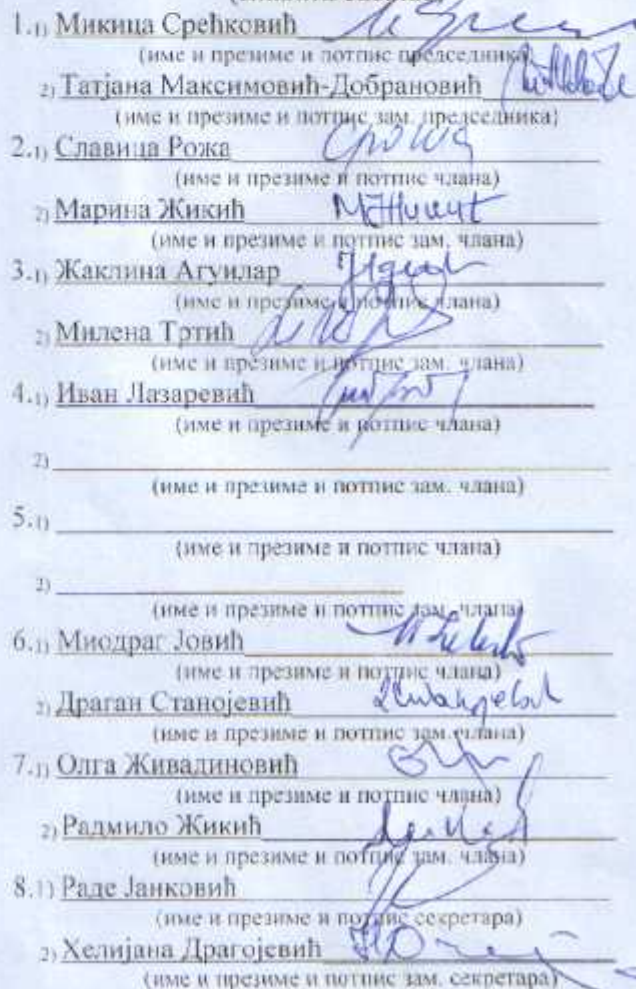 1.1) Микица Срећковић
(име и презиме и потпис председника)
2) Татјана Максимовић-Добрановић
(име и презиме и потпис зам. председника)
2.1) Славица Рожа
(име и презиме и потпис члана)
2) Марина Жикић
(име и презиме и потпис зам. члана)
3.1) Жаклина Агуилар
(име и презиме и потпис члана)
2) Милена Тртић
(име и презиме и потпис зам. члана)
4.1) Иван Лазаревић
(име и презиме и потпис члана)
2)
(име и презиме и потпис зам. члана)
5.1)
(име и презиме и потпис члана)
2)
(име и презиме и потпис зам. члана)
6.1) Миодраг Јовић
(име и презиме и потпис члана)
2) Драган Станојевић
(име и презиме и потпис зам. члана)
7.1) Олга Живадиновић
(име и презиме и потпис члана)
2) Радмило Жикић
(име и презиме и потпис зам. члана)
8.1) Раде Јанковић
(име и презиме и потпис секретара)
2) Хелијана Драгојевић
(име и презиме и потпис зам. секретара)